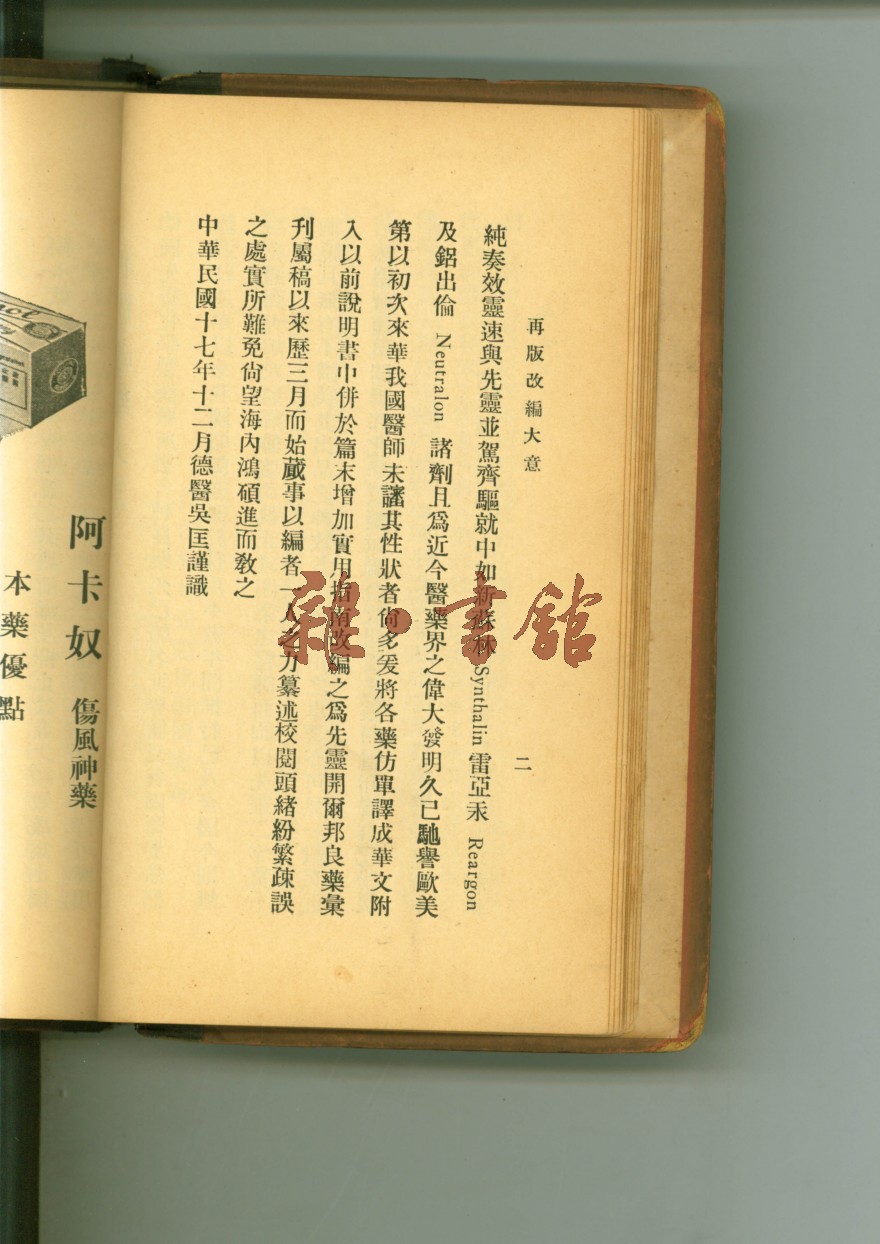 再版改編大意
二
純奏效靈速與先靈並駕齊驅就中如新蘇林 Synthalin 雷亞汞 Reargon
及鋁出倫 Neutralon 諸劑且爲近今醫藥界之偉大發明久已馳譽歐美
第以初次來華我國醫師未讅其性狀者尙多爰將各藥仿單譯成華文附
入以前說明書中併於篇末增加實用指南改編之爲先靈開爾邦良藥彙
刋屬稿以來歷三月而始蕆事以編者一人之力纂述校閱頭緖紛繁疎誤
之處實所難免尙望海內鴻碩進而敎之
中華民國十七年十二月德醫吳匡謹識
阿卡奴 傷風神藥
本藥優點
雜·書館